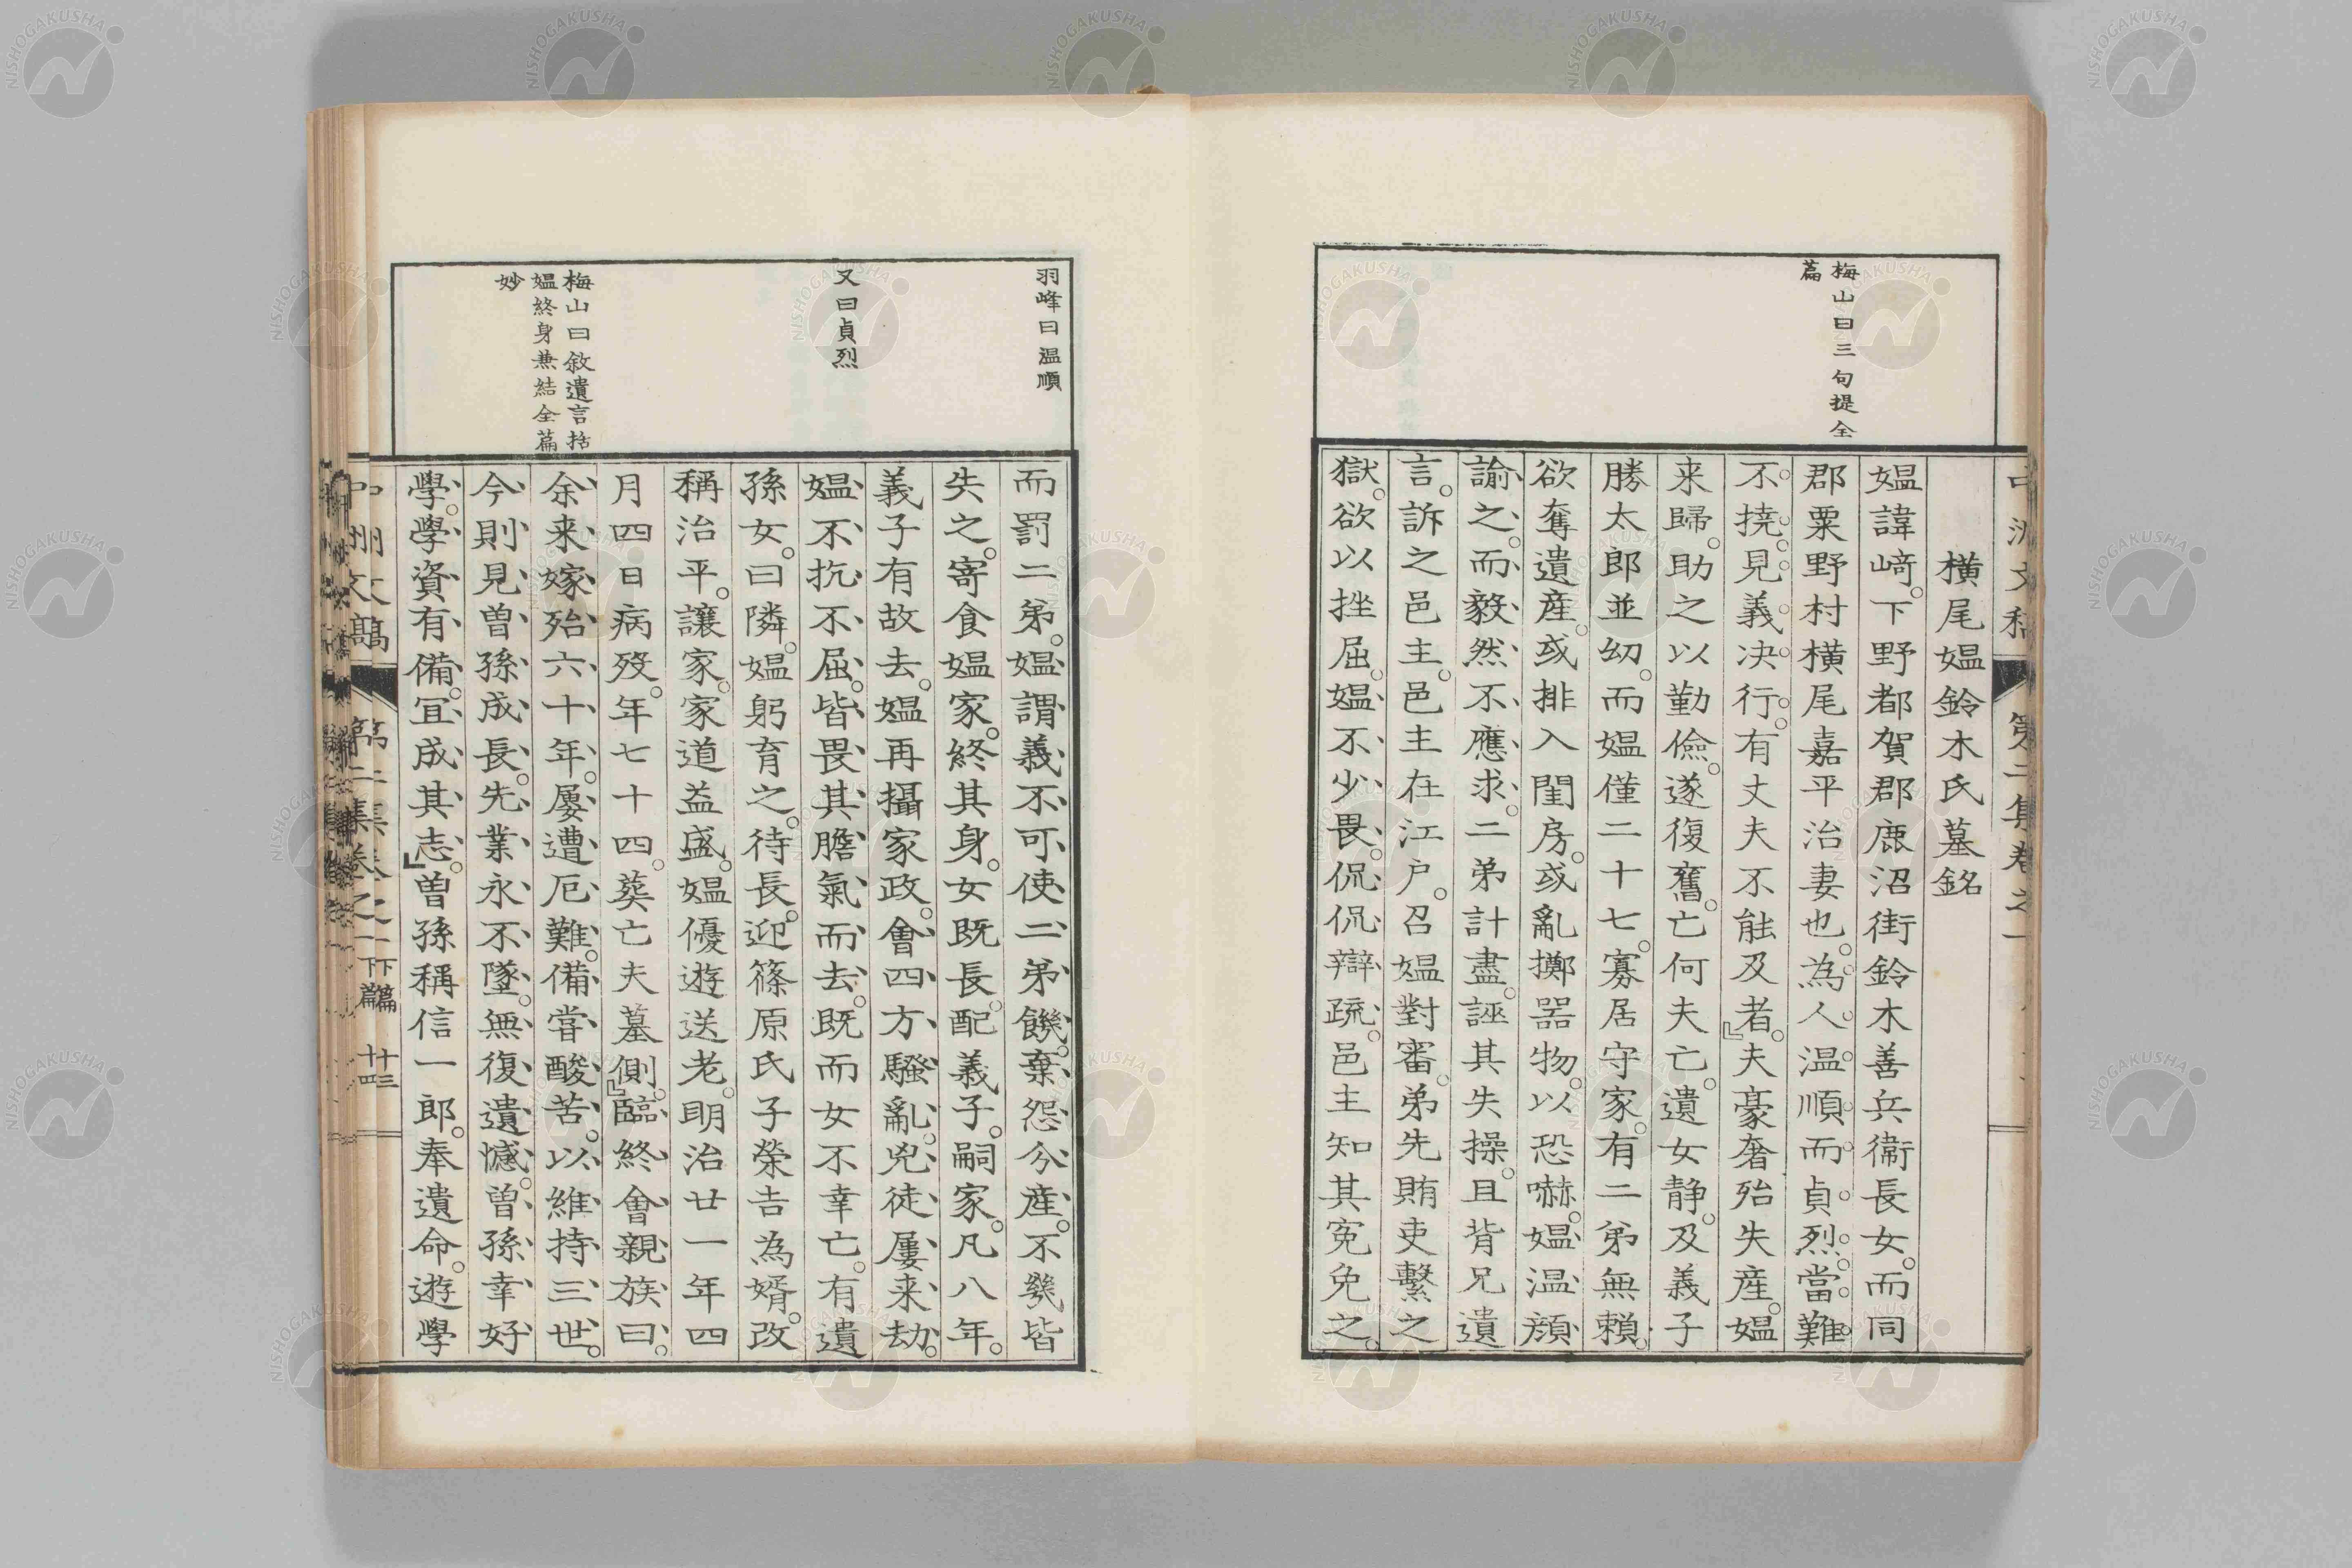 梅山曰三句提全
篇
横尾媼鈴木氏墓銘
媼諱﨑。下野都賀郡鹿沼街鈴木善兵衞長女。而同
郡粟野村横尾嘉平治妻也。為人温順而貞烈。當難
不撓。見義决行。有丈夫不能及者。』夫豪奢殆失産。媼
来歸。助之以勤儉。遂復舊。亡何夫亡。遺女静。及義子
勝太郎並幼。而媼僅二十七。寡居守家。有二弟無頼。
欲奪遺産。或排入閨房。或亂擲噐物。以恐嚇。媼温顔
諭之。而毅然不應求。二弟計盡。誣其失操。且背兄遺
言。訴之邑主。邑主在江户。召媼對審。弟先賄吏繫之
獄。欲以挫屈。媼不少畏。侃侃辯疏。邑主知其寃免之。
羽峰曰温順
又曰貞烈
梅山曰敘遺言括
媼終身兼結全篇
妙
而罰二弟。媼謂義不可使二弟饑。棄怨分産。不幾皆
失之。寄食媼家。終其身。女既長。配義子。嗣家。凡八年。
義子有故去。媼再攝家政。會四方騷亂。兇徒屢来劫。
媼不抗不屈。皆畏其膽氣而去。既而女不幸亡。有遺
孫女。曰隣。媼躬育之。待長。迎篠原氏子榮吉為婿。改
稱治平。讓家。家道益盛。媼優遊送老。明治廿一年四
月四日病歿。年七十四。葬亡夫墓側。』臨終會親族曰。
余来嫁殆六十年。屢遭厄難。備嘗酸苦。以維持三世。
今則見曽孫成長。先業永不墜。無復遺憾。曽孫幸好
學。學資有備。冝成其志。』曽孫稱信一郎。奉遺命。遊學